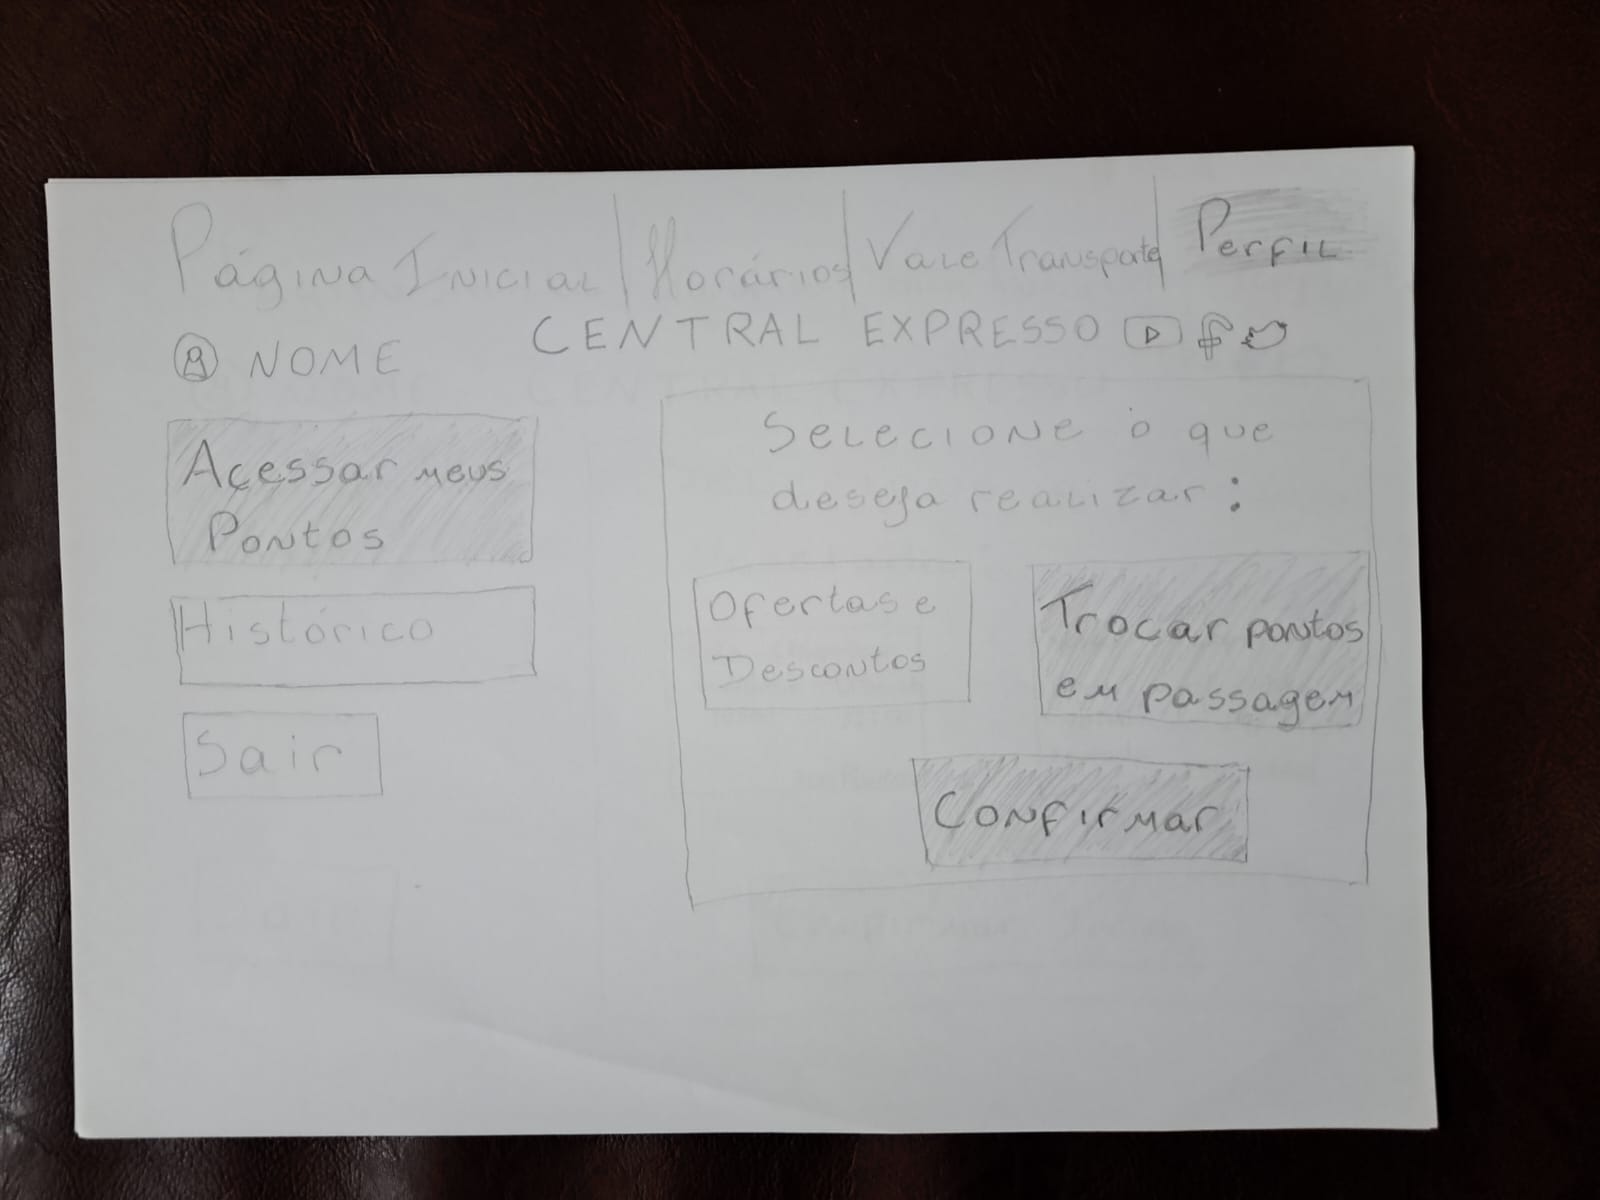 Página Inicial | Horários | Vale Transporte | Perfil
NOME
CENTRAL EXPRESSO
Acessar meus
Pontos
Histórico
Sair
Selecione o que
deseja realizar:
Ofertas e
Descontos
Trocar pontos
em passagem
Confirmar